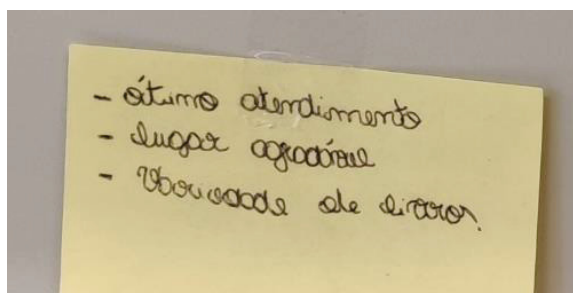 - ótimo atendimento
- lugar agradável
- Variedade de livros.